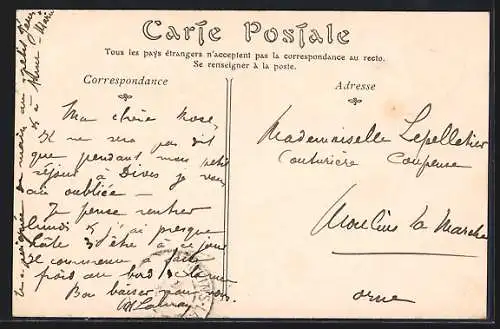 Carte Postale
Tous les pays étrangers n'acceptent pas la correspondance au recto.
Se renseigner à la poste.
Correspondance
Adresse
Ma chère Rose,
Il ne sera pas dit
que pendant mon petit
séjour à Dives je vous
ai oubliée –
Je pense rentrer
lundi & j'ai presque
hâte d'être à ce jour
Il commence à faire
froid au bord de la mer
Bon baiser pour vous
Mademoiselle Lepelletier
Couturière Coupeuse
Moulins la Marche
Orne